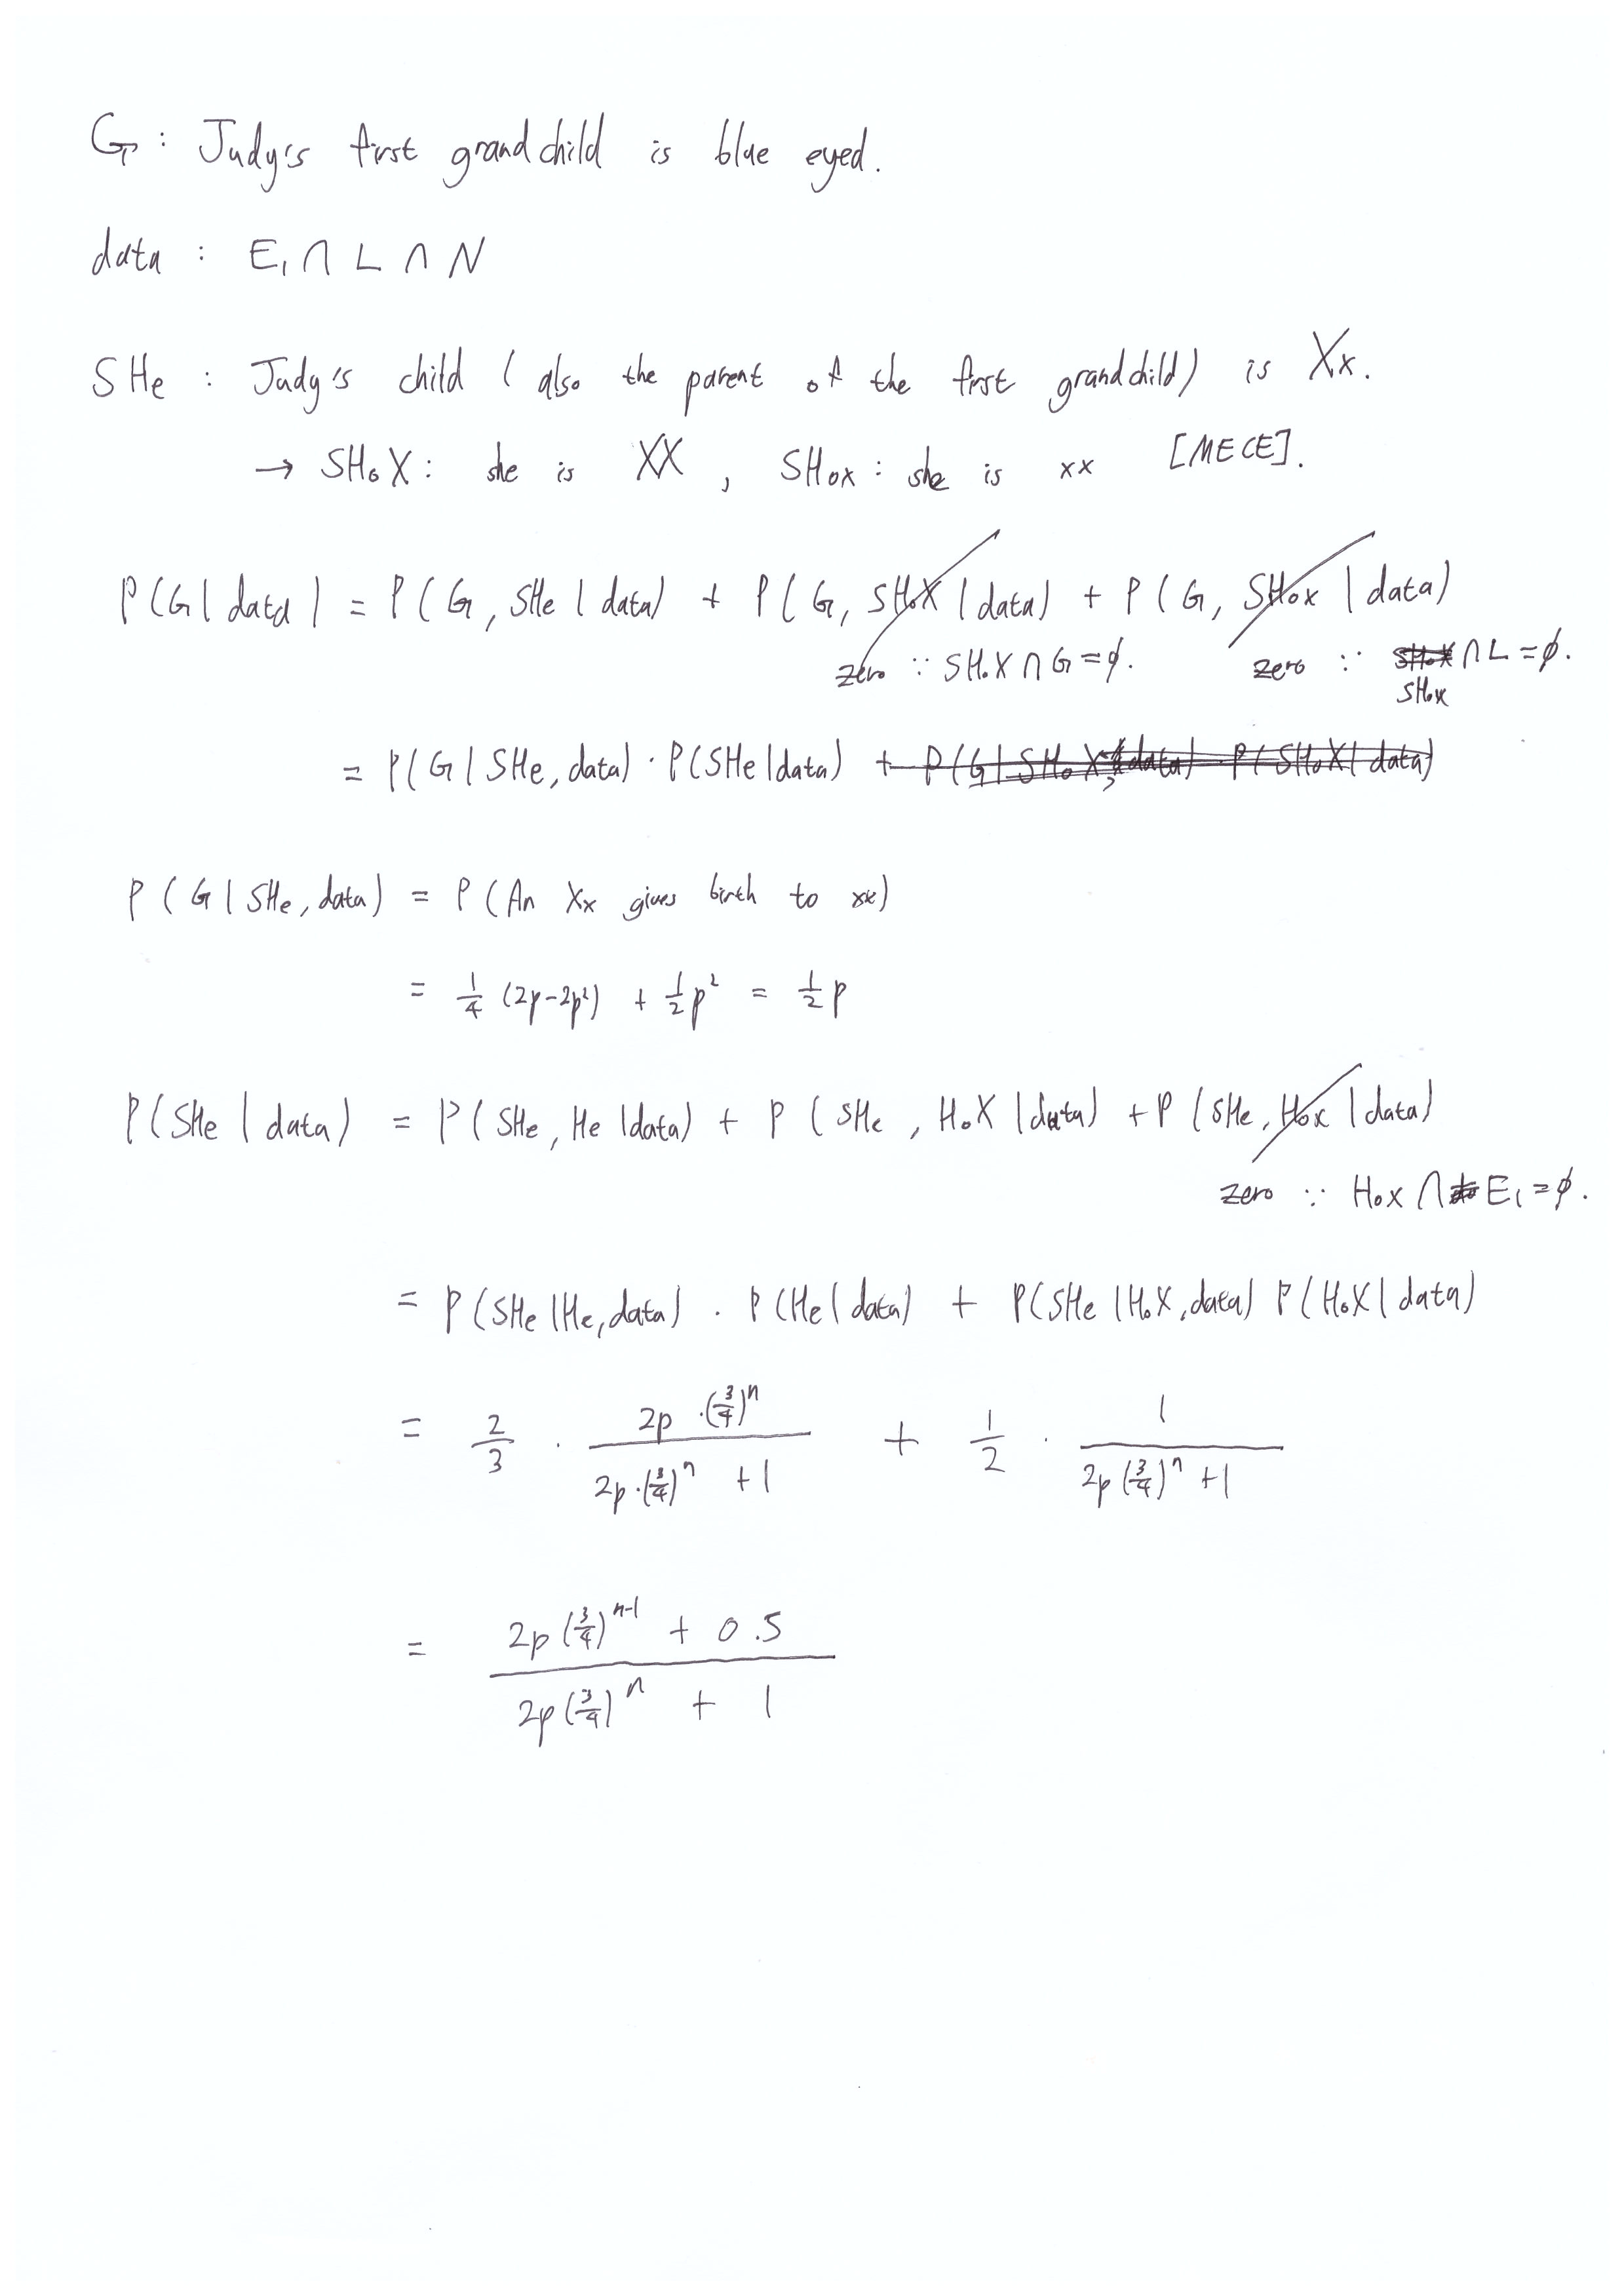 G : Judy's first grandchild is blue eyed.
data : E₁ ∩ L ∩ N
SHe : Judy's child ( also the parent of the first grandchild) is Xx.
→ SHoX : she is XX , SHox : she is xx [MECE].
P(G | data) = P(G, SHe | data) + P(G, SHoX | data) + P(G, SHox | data)
zero ∵ SHoX ∩ G = ϕ. zero ∵ SHox ∩ L = ϕ.
= P(G | SHe, data) · P(SHe | data) + P(G | SHoX, data) · P(SHoX | data)
P(G | SHe, data) = P(An Xx gives birth to xx)
= 1/4 (2p-2p²) + 1/2 p² = 1/2 p
P(SHe | data) = P(SHe, He | data) + P(SHe, HoX | data) + P(SHe, Hox | data)
zero ∵ Hox ∩ E₁ = ϕ.
= P(SHe | He, data) · P(He | data) + P(SHe | HoX, data) P(HoX | data)
= 2/3 · (2p · (3/4)ⁿ) / (2p · (3/4)ⁿ + 1) + 1/2 · 1 / (2p (3/4)ⁿ + 1)
= (2p (3/4)ⁿ⁻¹ + 0.5) / (2p (3/4)ⁿ + 1)